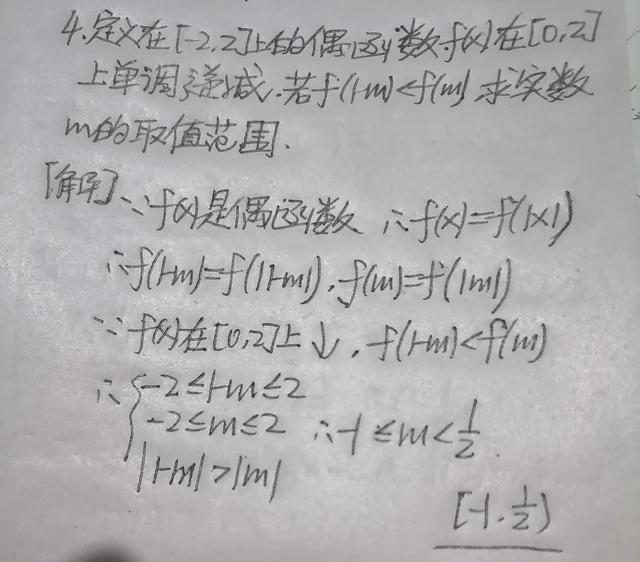 4.定义在[-2,2]上的偶函数f(x)在[0,2]
上单调递减.若f(1-m)<f(m),求实数
m的取值范围.
[解] ∵f(x)是偶函数 ∴f(x)=f(|x|)
∴f(1-m)=f(|1-m|),f(m)=f(|m|)
∵f(x)在[0,2]上↓,f(1-m)<f(m)
∴{-2≤1-m≤2
-2≤m≤2 ∴-1≤m<1/2.
|1-m|>|m|
[-1,1/2)